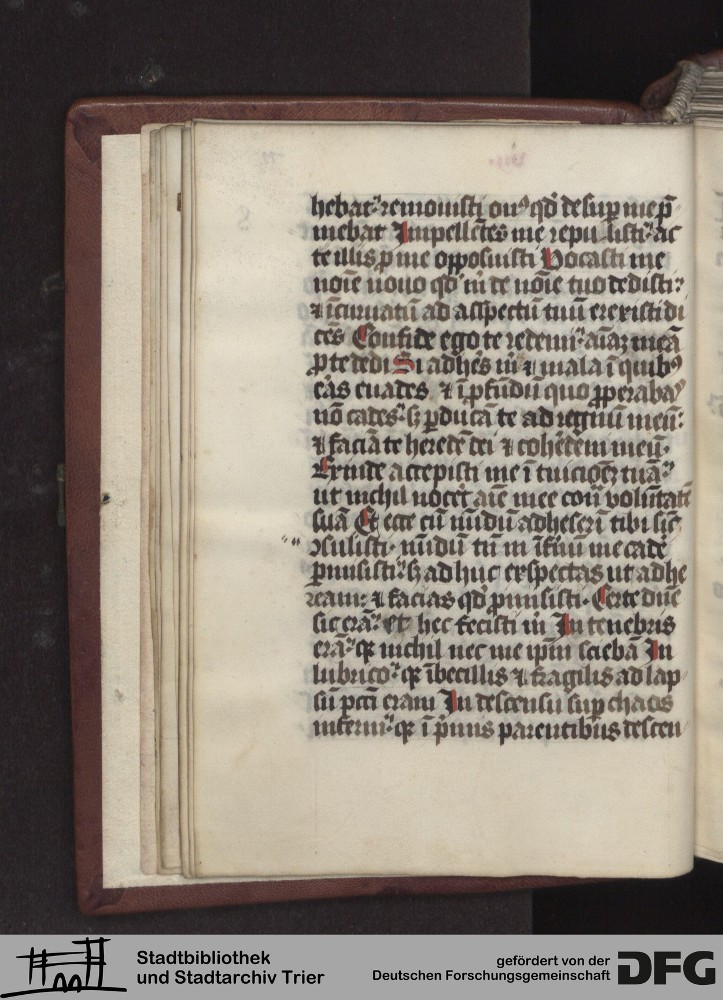 hebat: remouisti on⁹ qd̛ desup̱ me p̄
mebat Impellētes me repu listi: ac
te illis ꝓ me opposuisti Vocasti me
noīe nouo qd̛ m̄ de nōie tuo dedisti:
⁊ īcuruatū ad aspectū tuū erexisti di
cēs Confide ego te redemi: aīaꝫ meā
ꝓ te dedi Si adhes m̄ ⁊ mala ī quib⁹
eās euades ⁊ ī ꝓfūdū quo ꝓperaba⁹
nō cades: sꝫ ꝑducā te ad regnū meū:
⁊ faciā te heredē dei ⁊ cohēdem meū·
Exinde accepisti me ī tuicioeꝫ tuā:
ut nichil nocet aīe mee cont̄ volūtatē
suā Et ecce cū nūdū adheserī tibi sic̄
ꝯsulisti· nūdū tn̄ in īfnū me cade
ꝓmisisti: sꝫ ad huc exspectas ut adhe
ream: ⁊ facias qd̛ ꝓmisisti· Certe dūe
sic erā: et hec fecisti m̄ In tenebris
erā: qꝛ nichil nec me ip̄m sciebā In
lubrico: qꝛ ībecillis ⁊ fragilis ad lap
sū pct̄i eram In descensu sup̱ chaos
inferni: qꝛ ī p̄mis parentibus descen
Stadtbibliothek
und Stadtarchiv Trier
gefördert von der
Deutschen Forschungsgemeinschaft
DFG